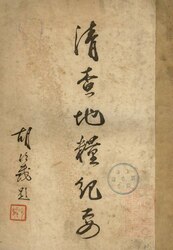 清查地糧紀要
胡次威題